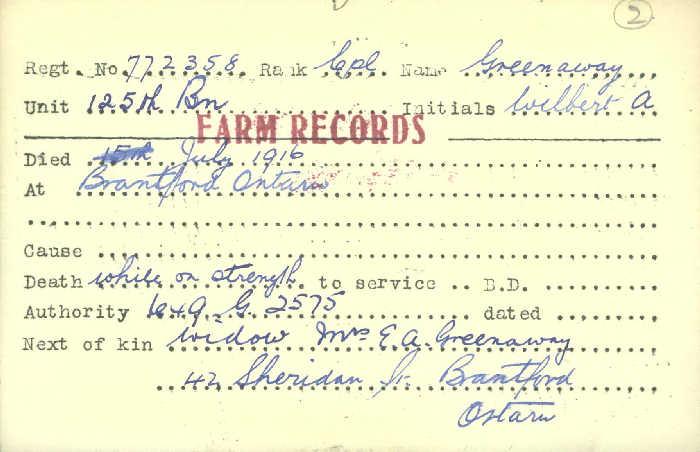 2
Regt. No. 772358 Rank Cpl Name Greenaway
Unit 125th Bn Initials Wilbert A
FARM RECORDS
Died 15th July 1916
At Brantford Ontario
Cause
Death while on strength to service .. B.D.
Authority 649. G. 2575 dated
Next of kin widow Mrs E.A. Greenaway
42 Sheridan St. Brantford
Ontario